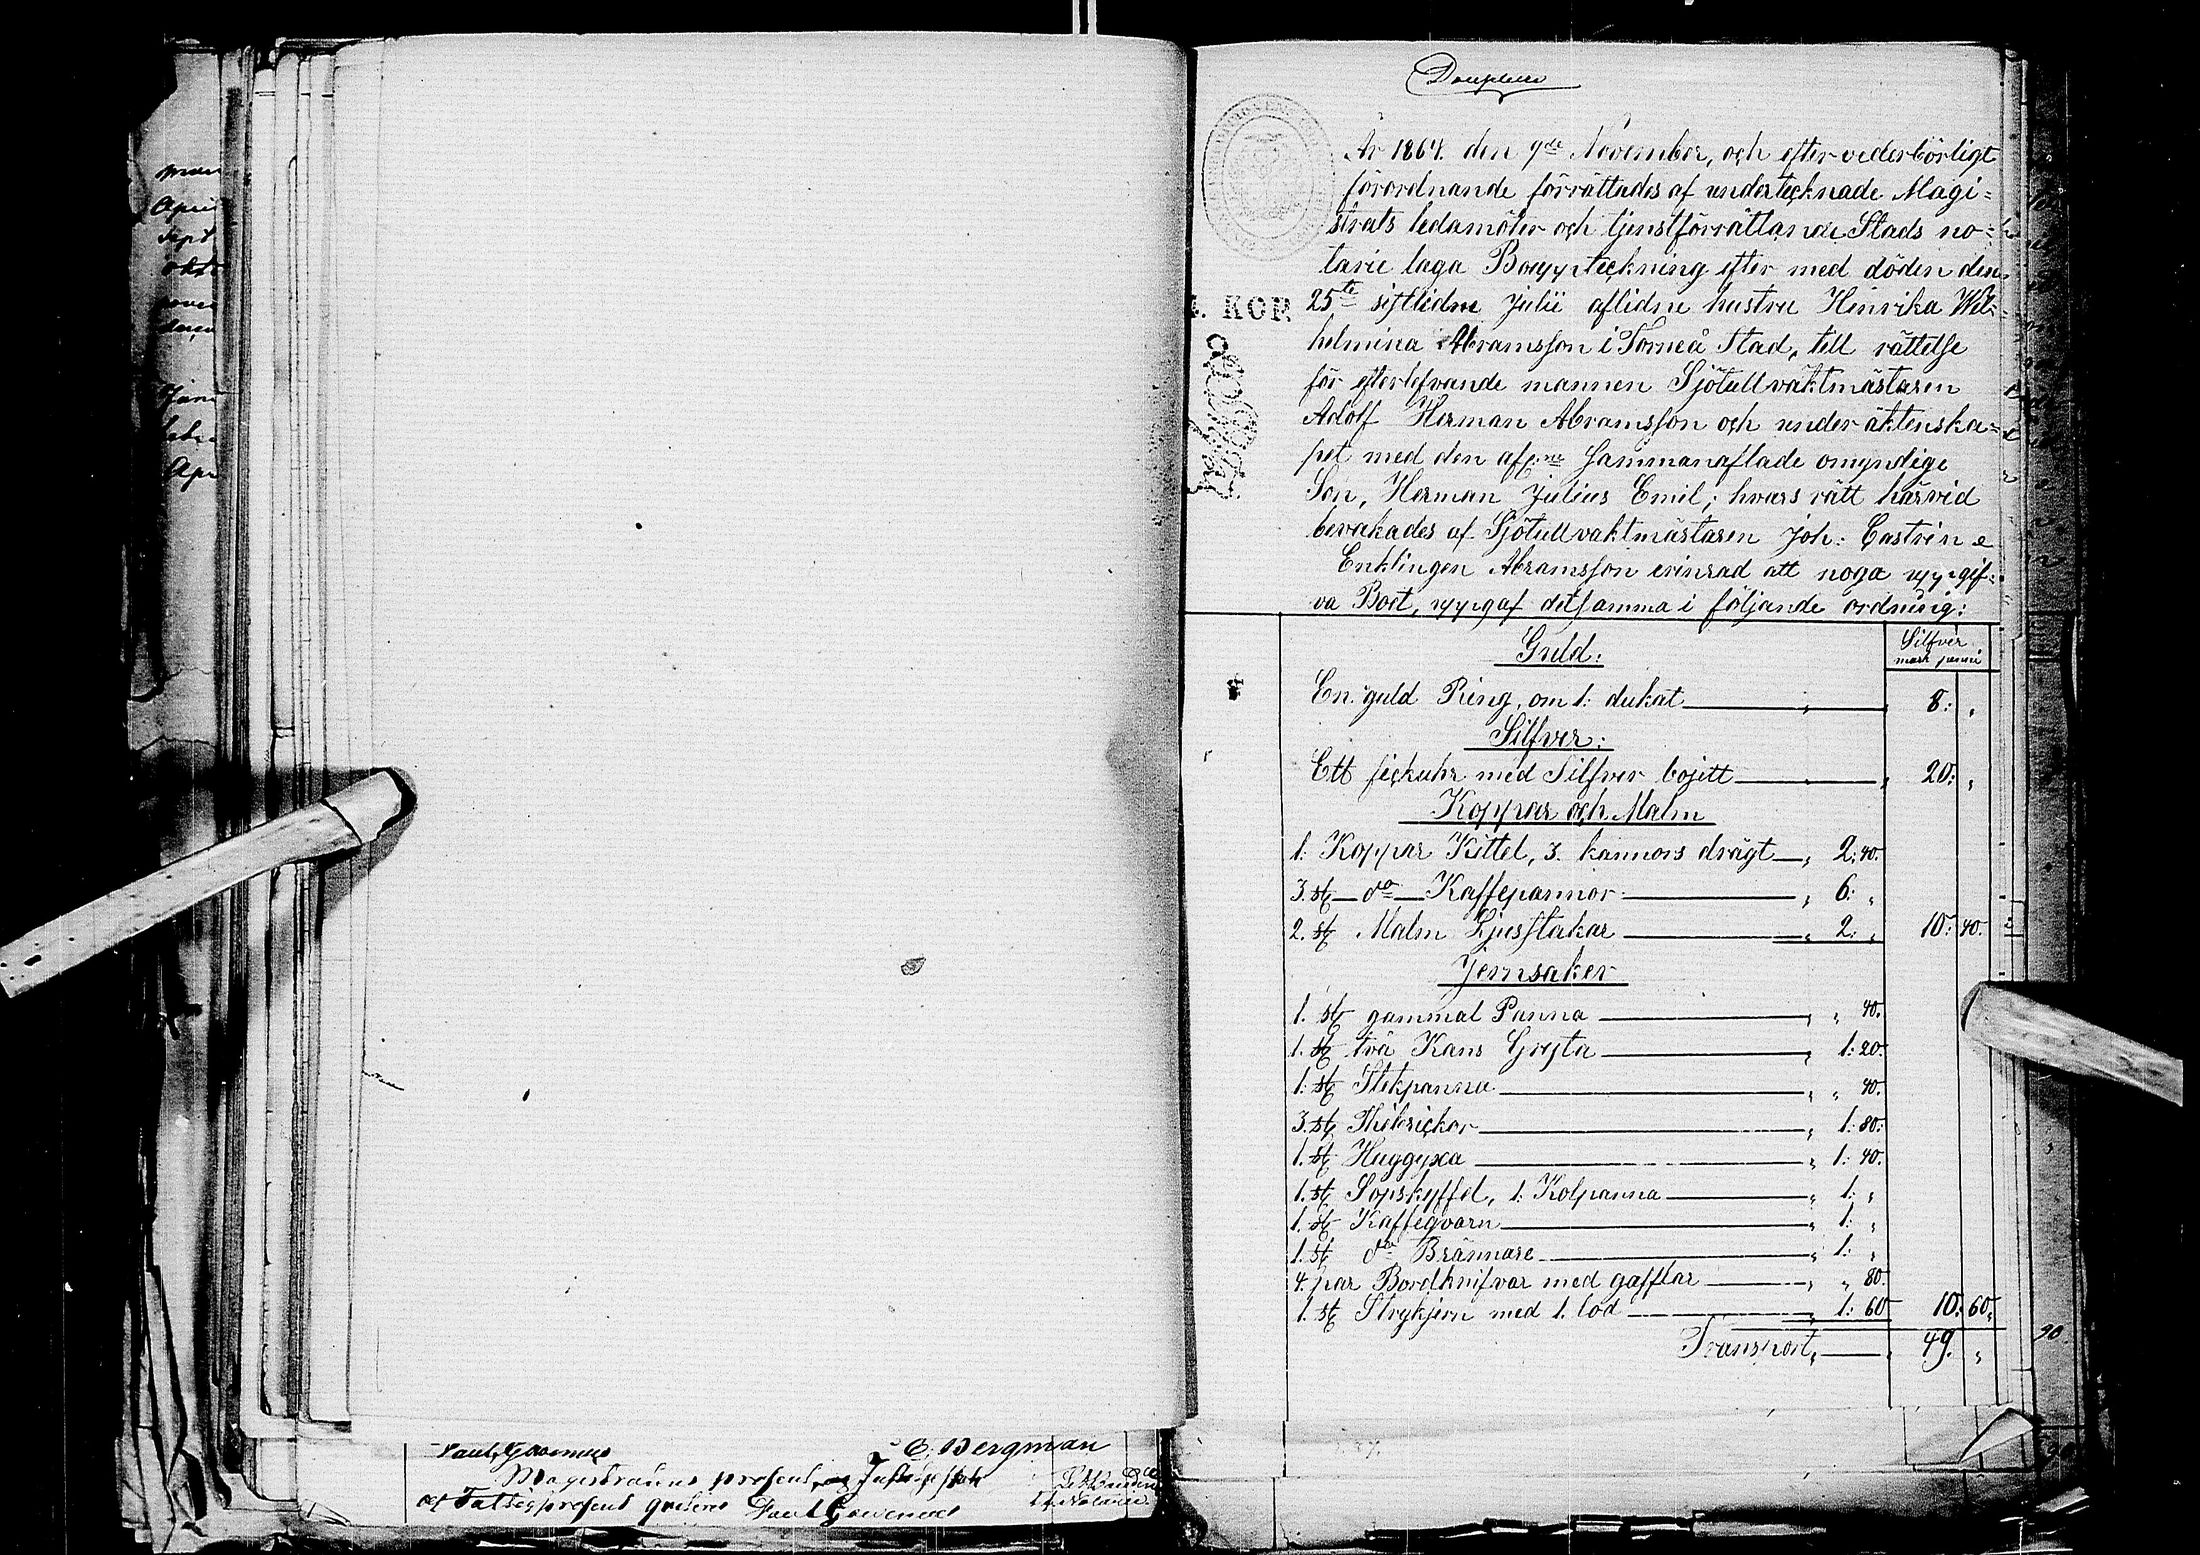 April
Sept
Paul Govenius
E. Bergman
Duplum
År 1864. den 9de November, och efter vederbörligt
förordnande förrättades af undertecknade Magi=
strats ledamöter och tjenstförrättande Stads no=
tarie laga Bouppteckning efter med döden den
4. KOP.
25te sistlidne Julii aflidne hustru Henrika Wil=
helmina Abramsson i Torneå Stad, till rättelse
för efterlefvande mannen Sjötullvaktmästaren
Adolf Herman Abramsson och under äktenska=
pet med den afl:ne sammanaflade omyndige
Son, Herman Julius Emil; hvars rätt härvid
bevakades af Sjötullvaktmästaren Joh: Castrén
Enklingen Abramsson erinrad att noga uppgif=
va Boet, uppgaf detsamma i följande ordning:
Guld:
Silfver
mark penni
En guld Ring, om 1: dukat 8: "
Silfver:
Ett fickuhr med Silfver bojett 20: "
Koppar och Malm
1: Koppar Kittel, 3. kannors drägt " 2: 40.
3. st do Kaffepannor " 6: "
2. st Malm Ljusstakar " 2: " 10: 40.
Jernsaker
1. st gammal Panna " " 40.
1. st två Kans Gryta " 1: 20.
1: st Stekpanna " " 40.
3. st " 1: 80:
1. st Huggyxa " 1: 40.
1. st Sopskyffel, 1: Kolpanna " 1: "
1. st Kaffeqvarn " 1: "
1. st do Brännare " 1: "
4. par Bordknifvar med gafflar " " 80
1. st Strykjern med 1. lod " 1: 60 10: 60.
Transport " 49. "